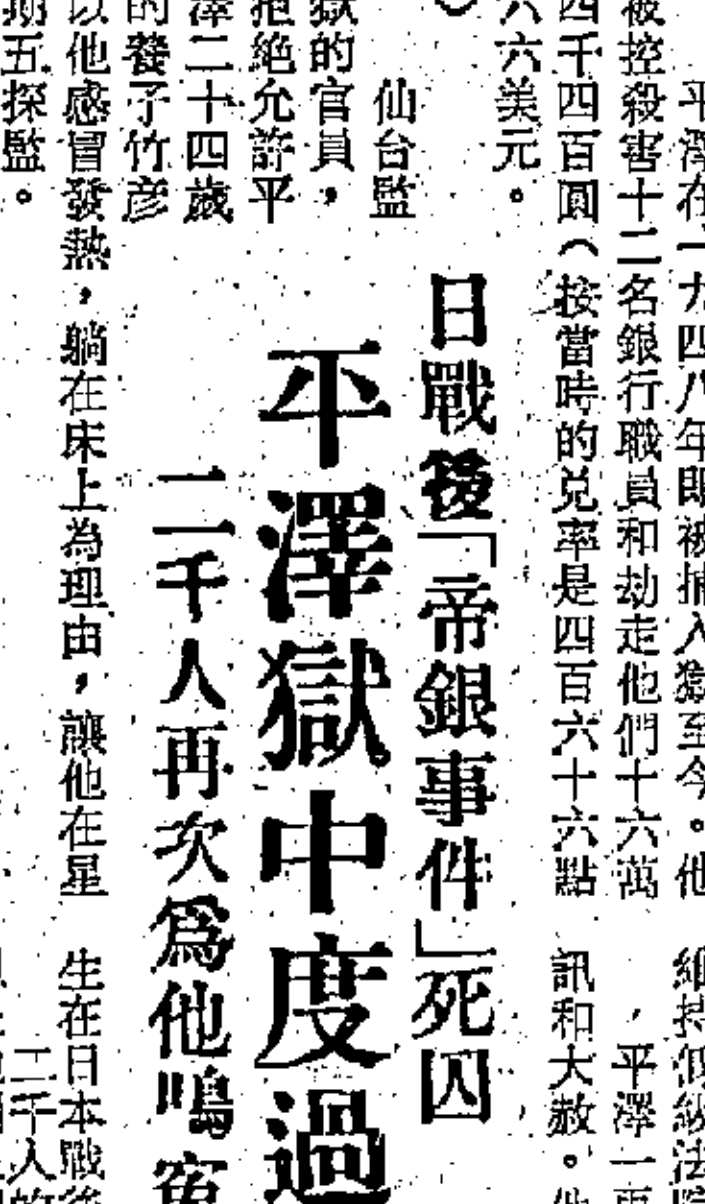 平澤在一九四八年即被捕入獄至今。他
被控殺害十二名銀行職員和劫走他們十六萬
四千四百圓（按當時的兌率是四百六十六點
六六美元。
）
日戰後「帝銀事件」死囚
平澤獄中度過
二千人再次爲他鳴寃
仙台監
獄的官員，
拒絕允許平
澤二十四歲
的養子竹彥
以他感冒發熱，躺在床上為理由，讓他在星
期五探監。
維持低級法院
，平澤一再
訊和大赦。他
生在日本戰後
二千人的